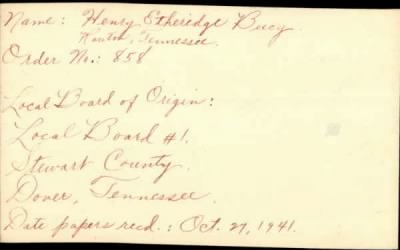 Name: Henry Etheridge Bucy.
Tennessee.
Order No.: 858
Local Board of Origin:
Local Board #1.
Stewart County.
Dover, Tennessee.
Date papers recd.: Oct. 27, 1941.